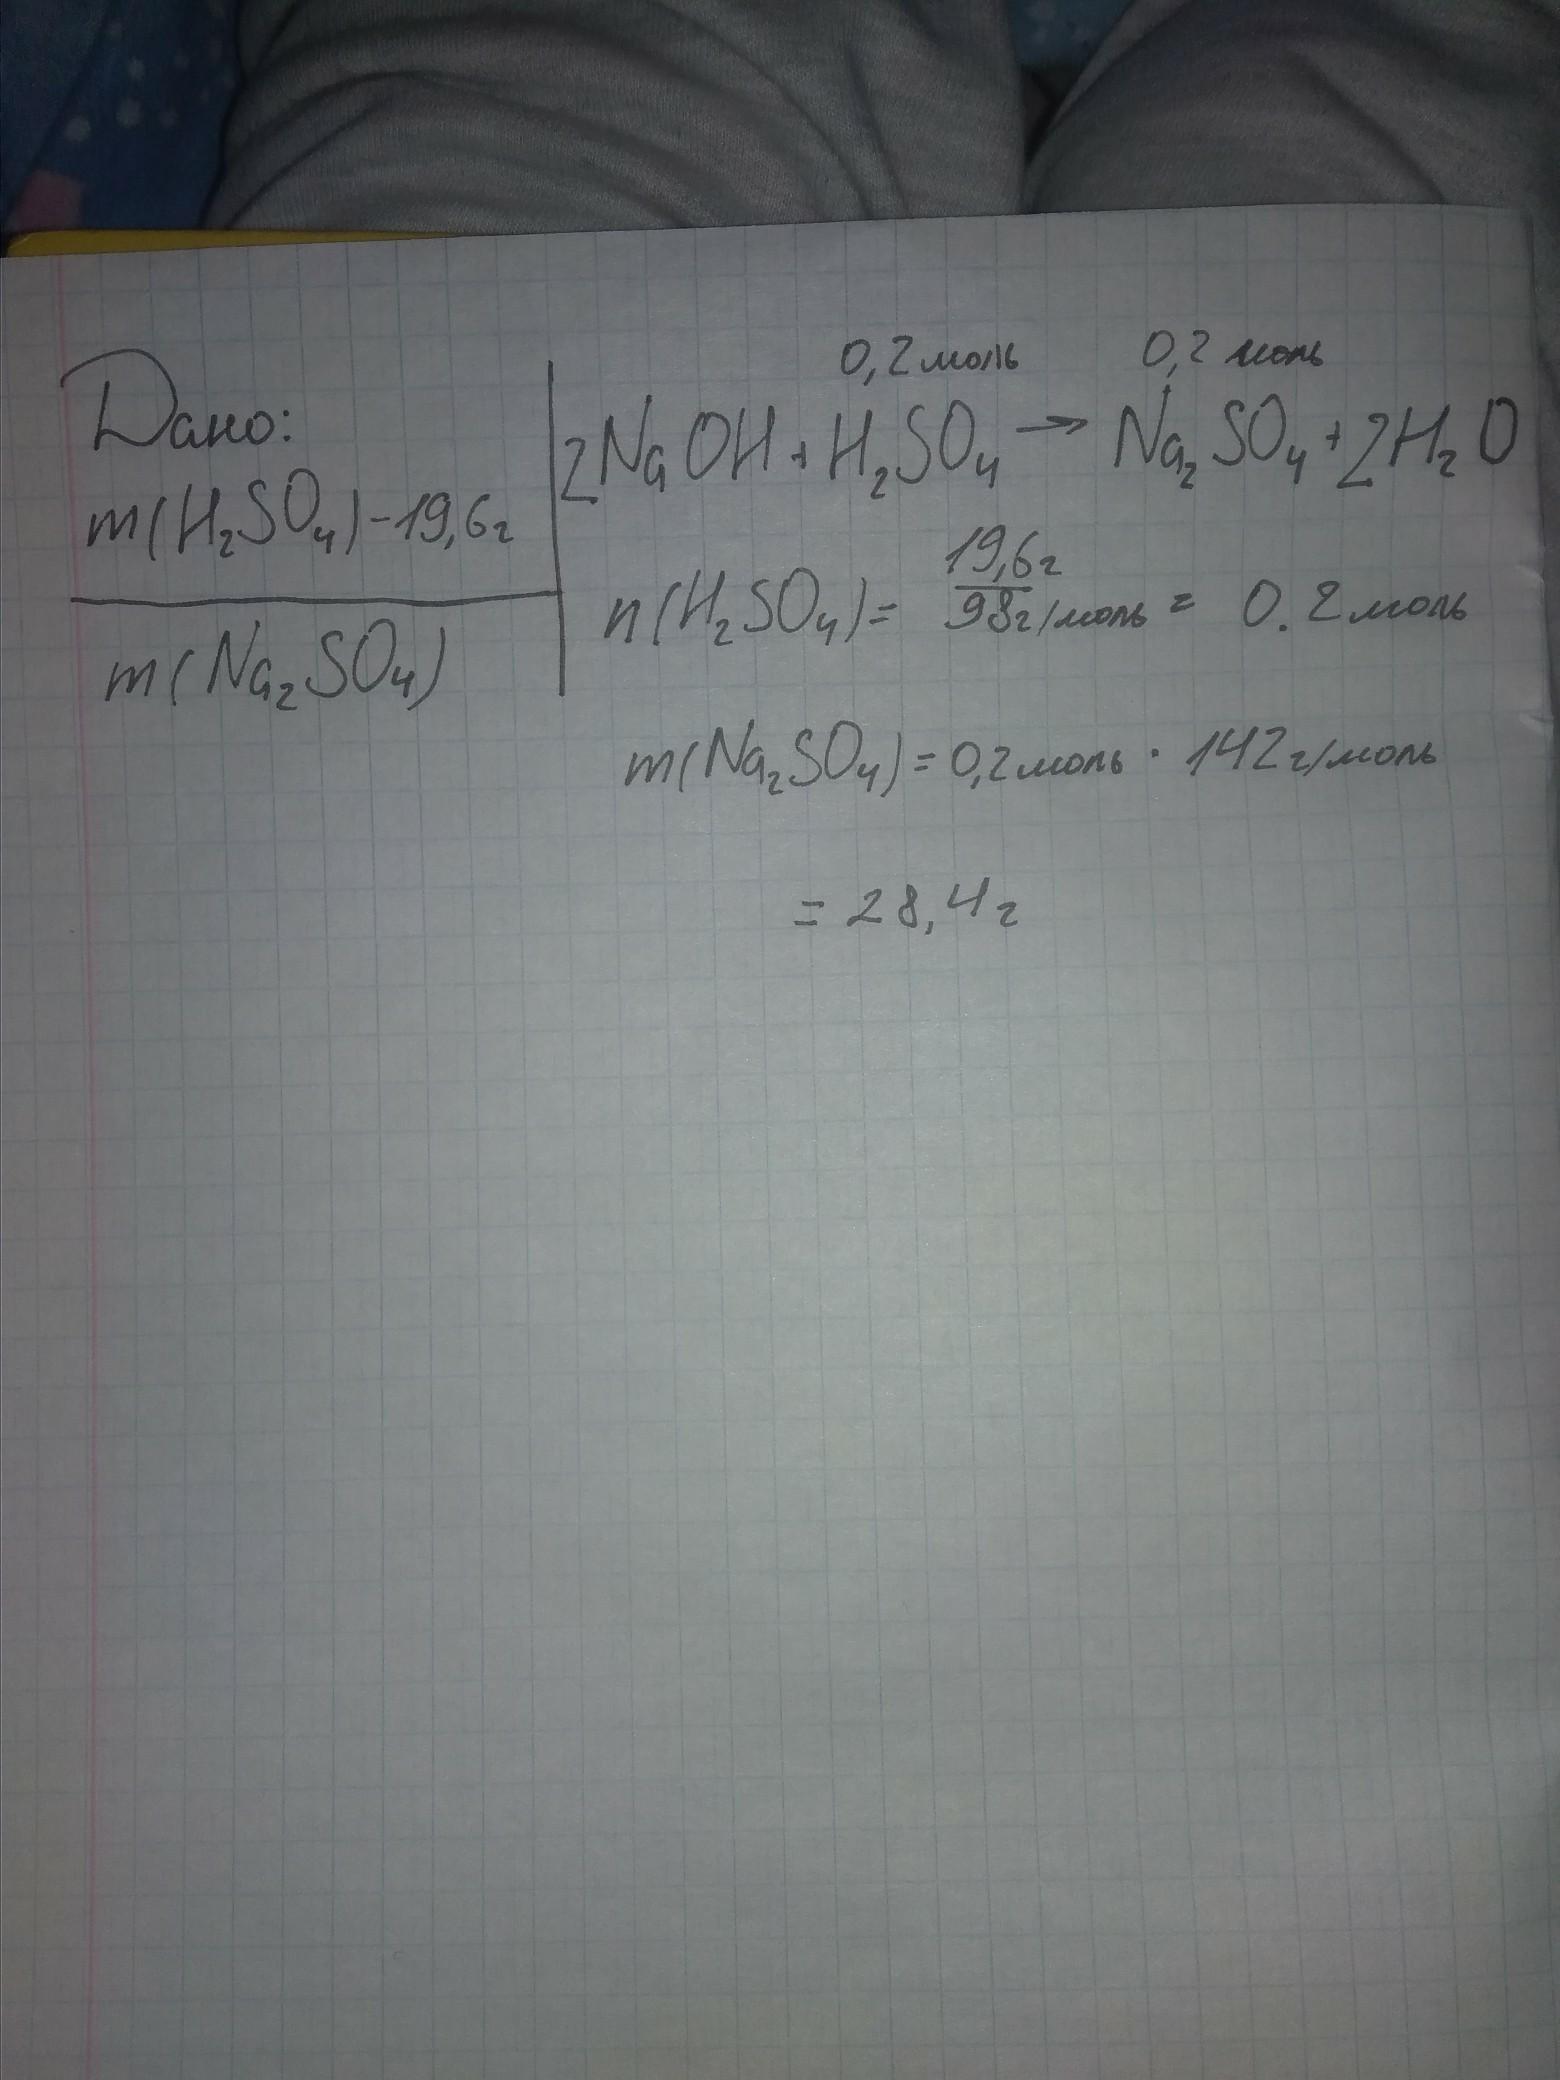 Дано:
m(H₂SO₄)-19,6г
m(Na₂SO₄)
0,2моль 0,2 моль
2NaOH+H₂SO₄→Na₂SO₄+2H₂O
n(H₂SO₄)= 19,6г/98г/моль = 0.2моль
m(Na₂SO₄)=0,2моль · 142г/моль
= 28,4г